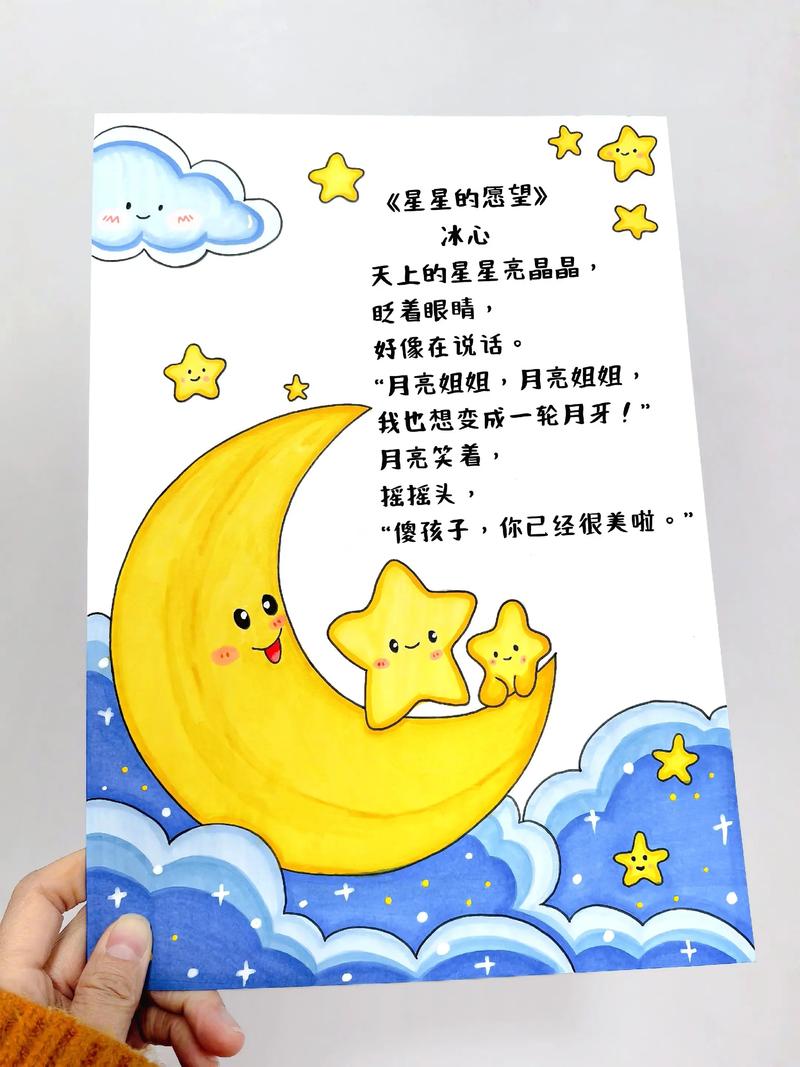 《星星的愿望》
冰心
天上的星星亮晶晶，
眨着眼睛，
好像在说话。
“月亮姐姐，月亮姐姐，
我也想变成一轮月牙！”
月亮笑着，
摇摇头，
“傻孩子，你已经很美啦。”